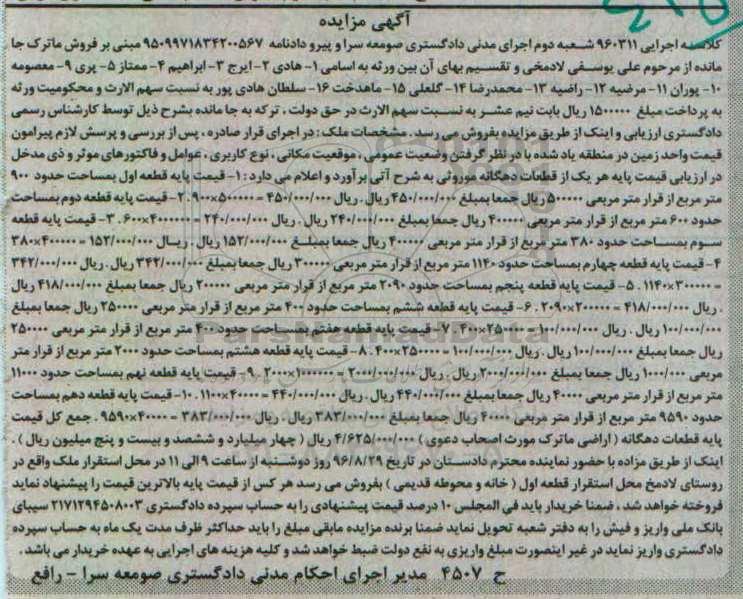 آگهی مزایده
کلاسه اجرایی ۹۶۰۳۱۱ شعبه دوم اجرای مدنی دادگستری صومعه سرا و پیرو دادنامه ۹۵۰۹۹۷۱۸۳۴۲۰۰۵۶۷ مبنی بر فروش ماترک جا
مانده از مرحوم علی یوسفی لادمخی و تقسیم بهای آن بین ورثه به اسامی ۱- هادی ۲- ایرج ۳- ابراهیم ۴- ممتاز ۵- پری ۹- معصومه
۱۰- پوران ۱۱- مرضیه ۱۲- راضیه ۱۳- محمدرضا ۱۴- گلعلی ۱۵- ماهدخت ۱۶- سلطان هادی پور به نسبت سهم الارث و محکومیت ورثه
به پرداخت مبلغ ۱۵۰۰۰۰۰ ریال بابت نیم عشر به نسبت سهم الارث در حق دولت ، ترکه به جا مانده بشرح ذیل توسط کارشناس رسمی
دادگستری ارزیابی و اینک از طریق مزایده بفروش می رسد . مشخصات ملک : در اجرای قرار صادره ، پس از بررسی و پرسش لازم پیرامون
قیمت واحد زمین در منطقه یاد شده با در نظر گرفتن وضعیت عمومی ، موقعیت مکانی ، نوع کاربری ، عوامل و فاکتورهای موثر و ذی مدخل
در ارزیابی قیمت پایه هر یک از قطعات دهگانه موروثی به شرح آتی برآورد و اعلام می دارد : ۱- قیمت پایه قطعه اول بمساحت حدود ۹۰۰
متر مربع از قرار متر مربعی ۵۰۰۰۰۰ ریال جمعا بمبلغ ۴۵۰/۰۰۰/۰۰۰ ریال . ریال ۴۵۰/۰۰۰/۰۰۰ = ۵۰۰۰۰۰×۹۰۰ . ۲- قیمت پایه قطعه دوم بمساحت
حدود ۶۰۰ متر مربع از قرار متر مربعی ۴۰۰۰۰۰ ریال جمعا بمبلغ ۲۴۰/۰۰۰/۰۰۰ ریال . ریال ۲۴۰/۰۰۰/۰۰۰ = ۴۰۰۰۰۰×۶۰۰ . ۳- قیمت پایه قطعه
سوم بمساحت حدود ۳۸۰ متر مربع از قرار متر مربعی ۴۰۰۰۰۰ ریال جمعا بمبلغ ۱۵۲/۰۰۰/۰۰۰ ریال . ریال ۱۵۲/۰۰۰/۰۰۰ = ۴۰۰۰۰۰×۳۸۰
۴- قیمت پایه قطعه چهارم بمساحت حدود ۱۱۴۰ متر مربع از قرار متر مربعی ۳۰۰۰۰۰ ریال جمعا بمبلغ ۳۴۲/۰۰۰/۰۰۰ ریال . ریال ۳۴۲/۰۰۰/۰۰۰
= ۳۰۰۰۰۰×۱۱۴۰ . ۵- قیمت پایه قطعه پنجم بمساحت حدود ۲۰۹۰ متر مربع از قرار متر مربعی ۲۰۰۰۰۰ ریال جمعا بمبلغ ۴۱۸/۰۰۰/۰۰۰ ریال
. ریال ۴۱۸/۰۰۰/۰۰۰ = ۲۰۰۰۰۰×۲۰۹۰ . ۶- قیمت پایه قطعه ششم بمساحت حدود ۴۰۰ متر مربع از قرار متر مربعی ۲۵۰۰۰۰ ریال جمعا بمبلغ
۱۰۰/۰۰۰/۰۰۰ ریال . ریال ۱۰۰/۰۰۰/۰۰۰ = ۲۵۰۰۰۰×۴۰۰ . ۷- قیمت پایه قطعه هفتم بمساحت حدود ۴۰۰ متر مربع از قرار متر مربعی ۲۵۰۰۰۰
ریال جمعا بمبلغ ۱۰۰/۰۰۰/۰۰۰ ریال . ریال ۱۰۰/۰۰۰/۰۰۰ = ۲۵۰۰۰۰×۴۰۰ . ۸- قیمت پایه قطعه هشتم بمساحت حدود ۲۰۰۰ متر مربع از قرار متر
مربعی ۱۰۰۰/۰۰۰ ریال جمعا بمبلغ ۲۰۰۰/۰۰۰/۰۰۰ ریال . ریال ۲۰۰۰/۰۰۰/۰۰۰ = ۱۰۰۰۰۰۰×۲۰۰۰ . ۹- قیمت پایه قطعه نهم بمساحت حدود ۱۱۰۰۰
متر مربع از قرار متر مربعی ۴۰۰۰۰ ریال جمعا بمبلغ ۴۴۰/۰۰۰/۰۰۰ ریال . ریال ۴۴۰/۰۰۰/۰۰۰ = ۴۰۰۰۰×۱۱۰۰۰ . ۱۰- قیمت پایه قطعه دهم بمساحت
حدود ۹۵۹۰ متر مربع از قرار متر مربعی ۴۰۰۰۰ ریال جمعا بمبلغ ۳۸۳/۰۰۰/۰۰۰ ریال . ریال ۳۸۳/۰۰۰/۰۰۰ = ۴۰۰۰۰×۹۵۹۰ . جمع کل قیمت
پایه قطعات دهگانه ( اراضی ماترک مورث اصحاب دعوی ) ۴/۶۲۵/۰۰۰/۰۰۰ ریال ( چهار میلیارد و ششصد و بیست و پنج میلیون ریال ) .
اینک از طریق مزاده با حضور نماینده محترم دادستان در تاریخ ۹۶/۸/۲۹ روز دوشنبه از ساعت ۹ الی ۱۱ در محل استقرار ملک واقع در
روستای لادمخ محل استقرار قطعه اول ( خانه و محوطه قدیمی ) بفروش می رسد هر کس از قیمت پایه بالاترین قیمت را پیشنهاد نماید
فروخته خواهد شد ، ضمنا خریدار باید فی المجلس ۱۰ درصد قیمت پیشنهادی را به حساب سپرده دادگستری ۲۱۷۱۲۹۴۵۰۸۰۰۳ سیبای
بانک ملی واریز و فیش را به دفتر شعبه تحویل نماید ضمنا برنده مزایده مابقی مبلغ را باید حداکثر ظرف مدت یک ماه به حساب سپرده
دادگستری واریز نماید در غیر اینصورت مبلغ واریزی به نفع دولت ضبط خواهد شد و کلیه هزینه های اجرایی به عهده خریدار می باشد .
ح ۴۵۰۷ مدیر اجرای احکام مدنی دادگستری صومعه سرا - رافع